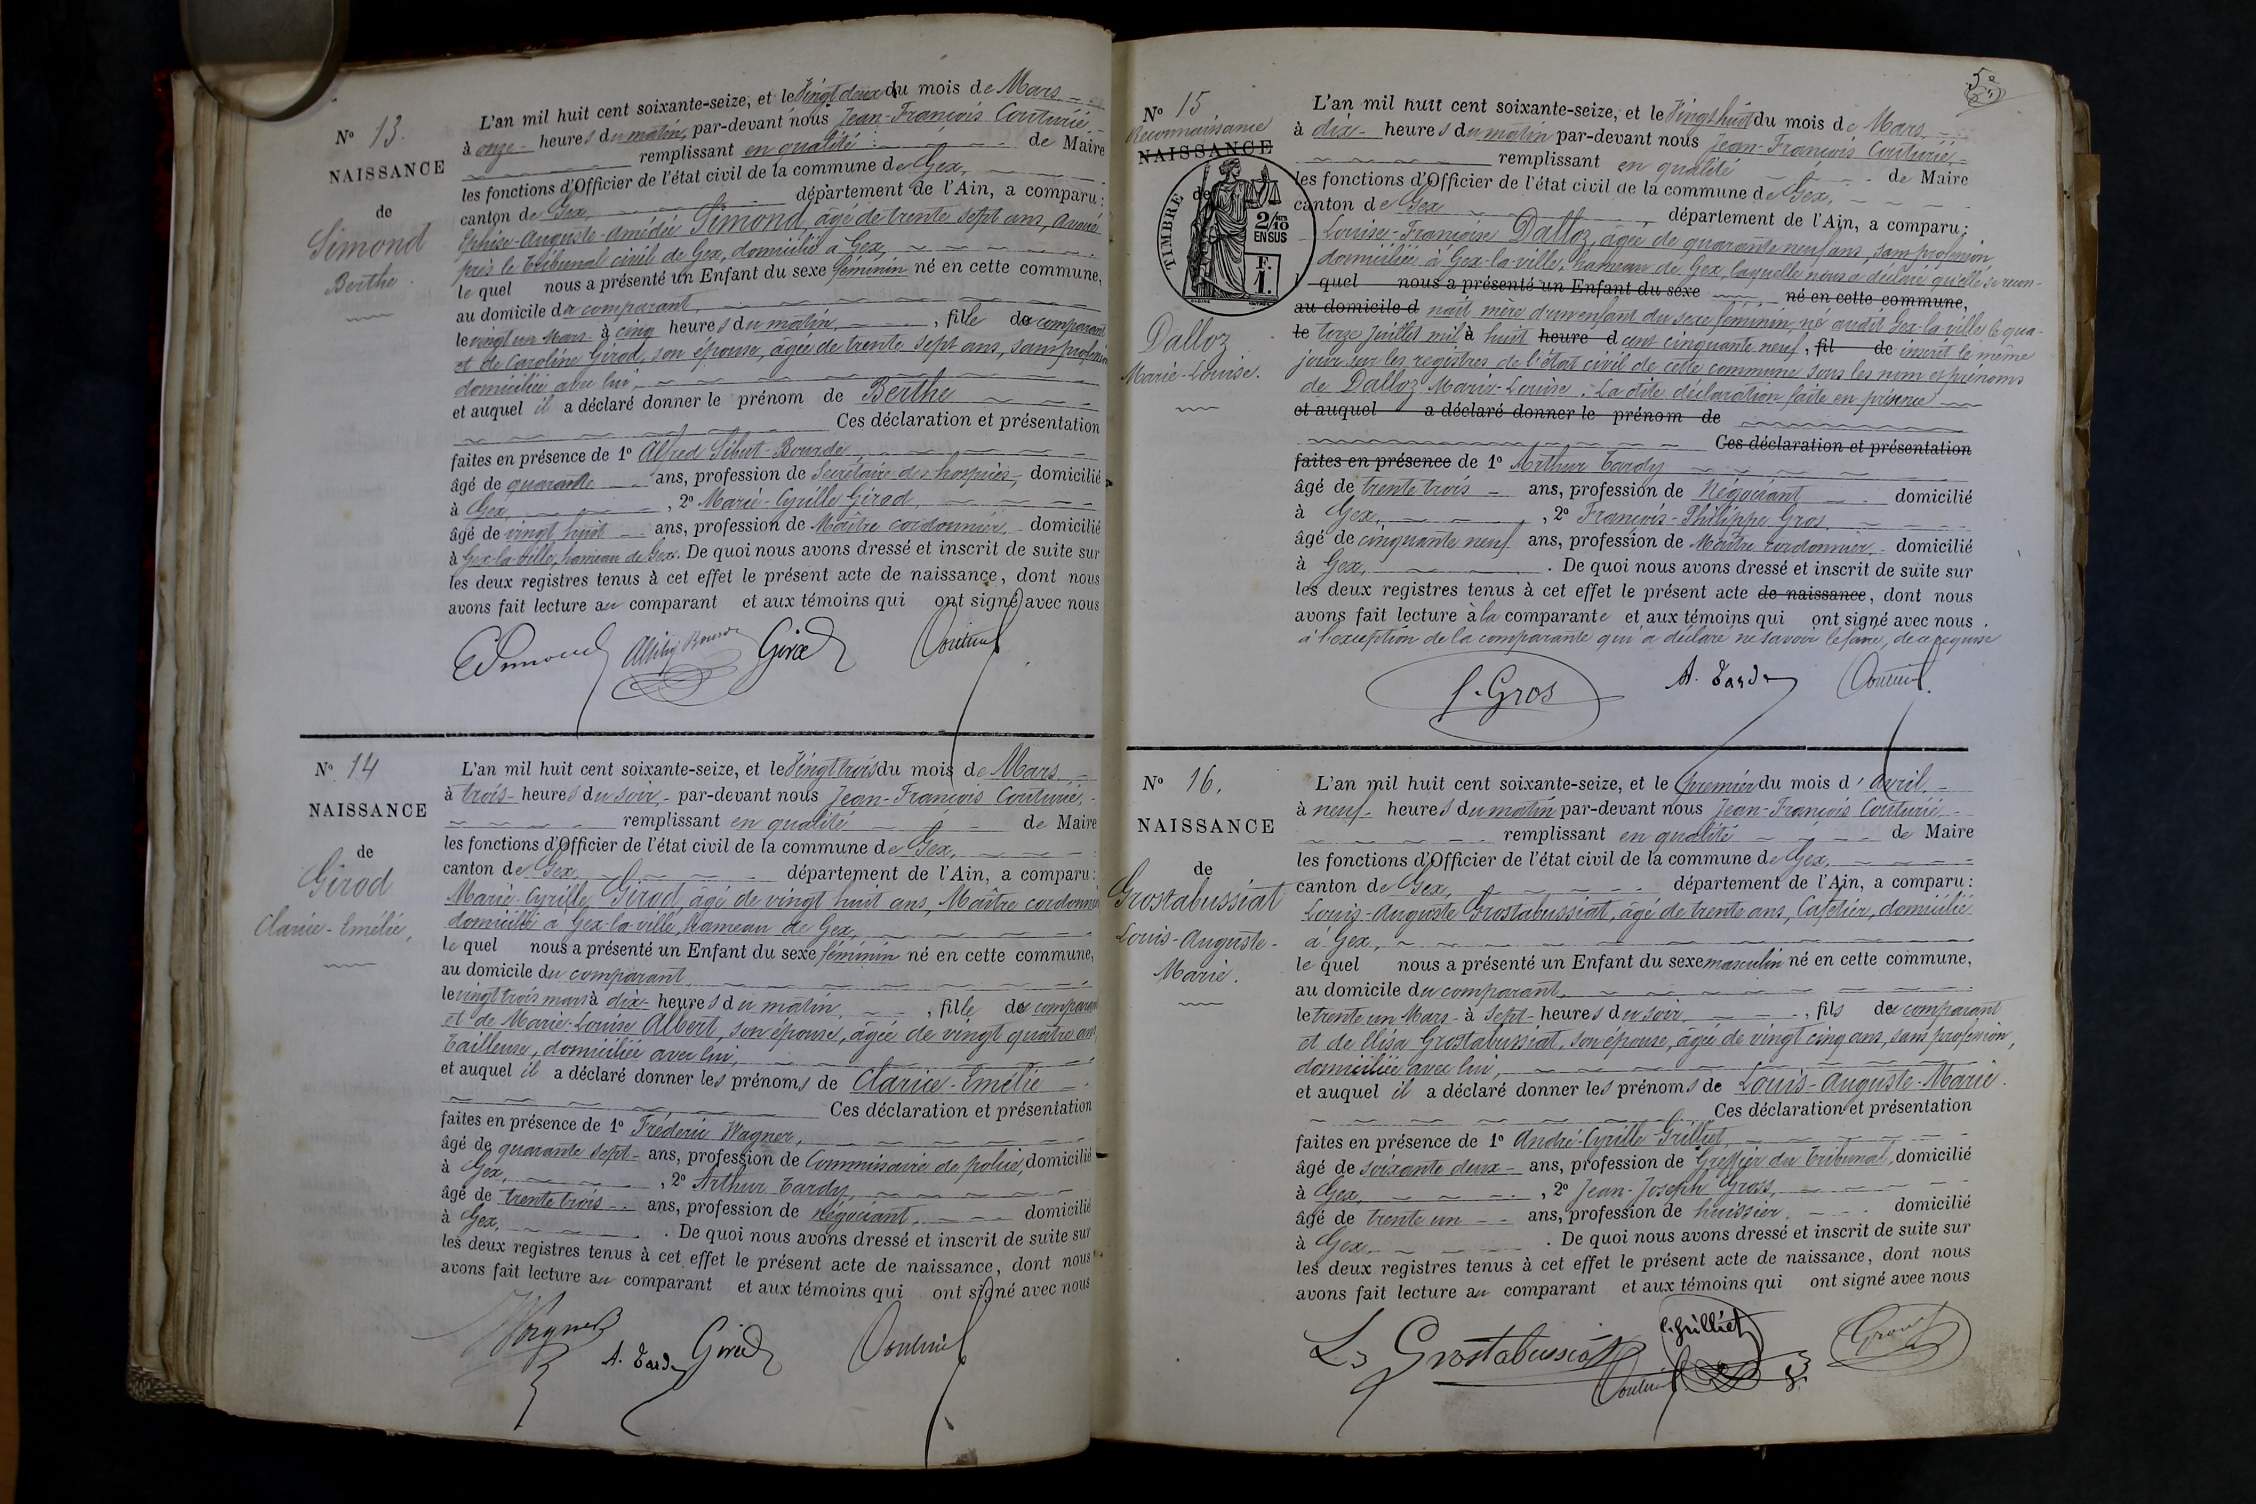 N° 13.
NAISSANCE
de
Simond
Berthe.
L'an mil huit cent soixante-seize, et le Vingt deux du mois de Mars
à onze heures du matin, par-devant nous Jean-François Couturié
remplissant en qualité de Maire
les fonctions d'Officier de l'état civil de la commune de Gex,
canton de Gex, département de l'Ain, a comparu :
Auguste-Amédée Simond, âgé de trente sept ans, avoué
près le tribunal civil de Gex, domicilié à Gex,
lequel nous a présenté un Enfant du sexe féminin né en cette commune,
au domicile du comparant,
le vingt un Mars à cinq heures du matin, fille du comparant
et de Caroline Girod, son épouse, âgée de trente sept ans, sans profession
domiciliée avec lui,
et auquel il a déclaré donner le prénom de Berthe
Ces déclaration et présentation
faites en présence de 1° Alfred Sibut-Bourde,
âgé de quarante ans, profession de Secrétaire des hospices, domicilié
à Gex, 2° Marie-Cyrille Girod,
âgé de vingt huit ans, profession de Maître cordonnier, domicilié
à Gex-la-ville, hameau de Gex. De quoi nous avons dressé et inscrit de suite sur
les deux registres tenus à cet effet le présent acte de naissance, dont nous
avons fait lecture au comparant et aux témoins qui ont signé avec nous
Girod
N° 14
NAISSANCE
de
Girod
Clarice-Emélie,
L'an mil huit cent soixante-seize, et le Vingt trois du mois de Mars
à trois heures du soir, par-devant nous Jean-François Couturié,
remplissant en qualité de Maire
les fonctions d'Officier de l'état civil de la commune de Gex,
canton de Gex, département de l'Ain, a comparu :
Marie-Cyrille Girod, âgé de vingt huit ans, Maître cordonnier
domicilié à Gex-la-ville, hameau de Gex,
lequel nous a présenté un Enfant du sexe féminin né en cette commune,
au domicile du comparant
le vingt trois mars à dix heures du matin, fille du comparant
et de Marie-Louise Albert, son épouse, âgée de vingt quatre ans,
Tailleuse, domiciliée avec lui,
et auquel il a déclaré donner les prénoms de Clarice-Emélie
Ces déclaration et présentation
faites en présence de 1° Fréderic Wagner,
âgé de quarante sept ans, profession de Commissaire de police, domicilié
à Gex, 2° Arthur Tardy,
âgé de trente trois ans, profession de négociant, domicilié
à Gex, . De quoi nous avons dressé et inscrit de suite sur
les deux registres tenus à cet effet le présent acte de naissance, dont nous
avons fait lecture au comparant et aux témoins qui ont signé avec nous
Wagner A. Tardy Girod
5e
N° 15
Reconnaissance
NAISSANCE
de
TIMBRE
2/10
EN SUS
F.
1.
Dalloz
Marie-Louise.
L'an mil huit cent soixante-seize, et le Vingt huit du mois de Mars
à dix heures du matin par-devant nous Jean-François Couturié,
remplissant en qualité de Maire
les fonctions d'Officier de l'état civil de la commune de Gex,
canton de Gex, département de l'Ain, a comparu :
Louise-Françoise Dalloz, âgée de quarante neuf ans, sans profession
domiciliée à Gex-la-ville, hameau de Gex, laquelle nous a déclaré qu'elle se recon-
l quel nous a présenté un Enfant du sexe né en cette commune,
au domicile d naît mère d'un enfant du sexe féminin, né audit Gex-la-ville le qua-
le torze Juillet mil à huit heure d cent cinquante neuf, fil de inscrit le même
jour sur les registres de l'état civil de cette commune sous les nom et prénoms
de Dalloz Marie-Louise. La dite déclaration faite en présence
et auquel a déclaré donner le prénom de
Ces déclaration et présentation
faites en présence de 1° Arthur Tardy
âgé de trente trois ans, profession de Négociant domicilié
à Gex, 2° François-Philippe Gros
âgé de cinquante neuf ans, profession de Maître cordonnier domicilié
à Gex, . De quoi nous avons dressé et inscrit de suite sur
les deux registres tenus à cet effet le présent acte de naissance, dont nous
avons fait lecture à la comparante et aux témoins qui ont signé avec nous.
à l'exception de la comparante qui a déclaré ne savoir le faire, de ce requise
f. Gros A. Tardy
N° 16.
NAISSANCE
de
Grostabussiat
Louis-Auguste-
Marie.
L'an mil huit cent soixante-seize, et le premier du mois d'avril,
à neuf heures du matin par-devant nous Jean-François Couturié
remplissant en qualité de Maire
les fonctions d'Officier de l'état civil de la commune de Gex,
canton de Gex, département de l'Ain, a comparu :
Louis-Auguste Grostabussiat, âgé de trente ans, Cafetier, domicilié
à Gex,
lequel nous a présenté un Enfant du sexe masculin né en cette commune,
au domicile du comparant,
le trente un Mars à sept heures du soir, fils du comparant
et de Elisa Grostabussiat, son épouse, âgée de vingt cinq ans, sans profession,
domiciliée avec lui,
et auquel il a déclaré donner les prénoms de Louis-Auguste-Marie.
Ces déclaration et présentation
faites en présence de 1° André-Cyrille Grilliet,
âgé de soixante deux ans, profession de Greffier du tribunal, domicilié
à Gex, 2° Jean-Joseph Gros,
âgé de trente un ans, profession de huissier, domicilié
à Gex. . De quoi nous avons dressé et inscrit de suite sur
les deux registres tenus à cet effet le présent acte de naissance, dont nous
avons fait lecture au comparant et aux témoins qui ont signé avec nous
Ls Grostabussiat C. Grilliet